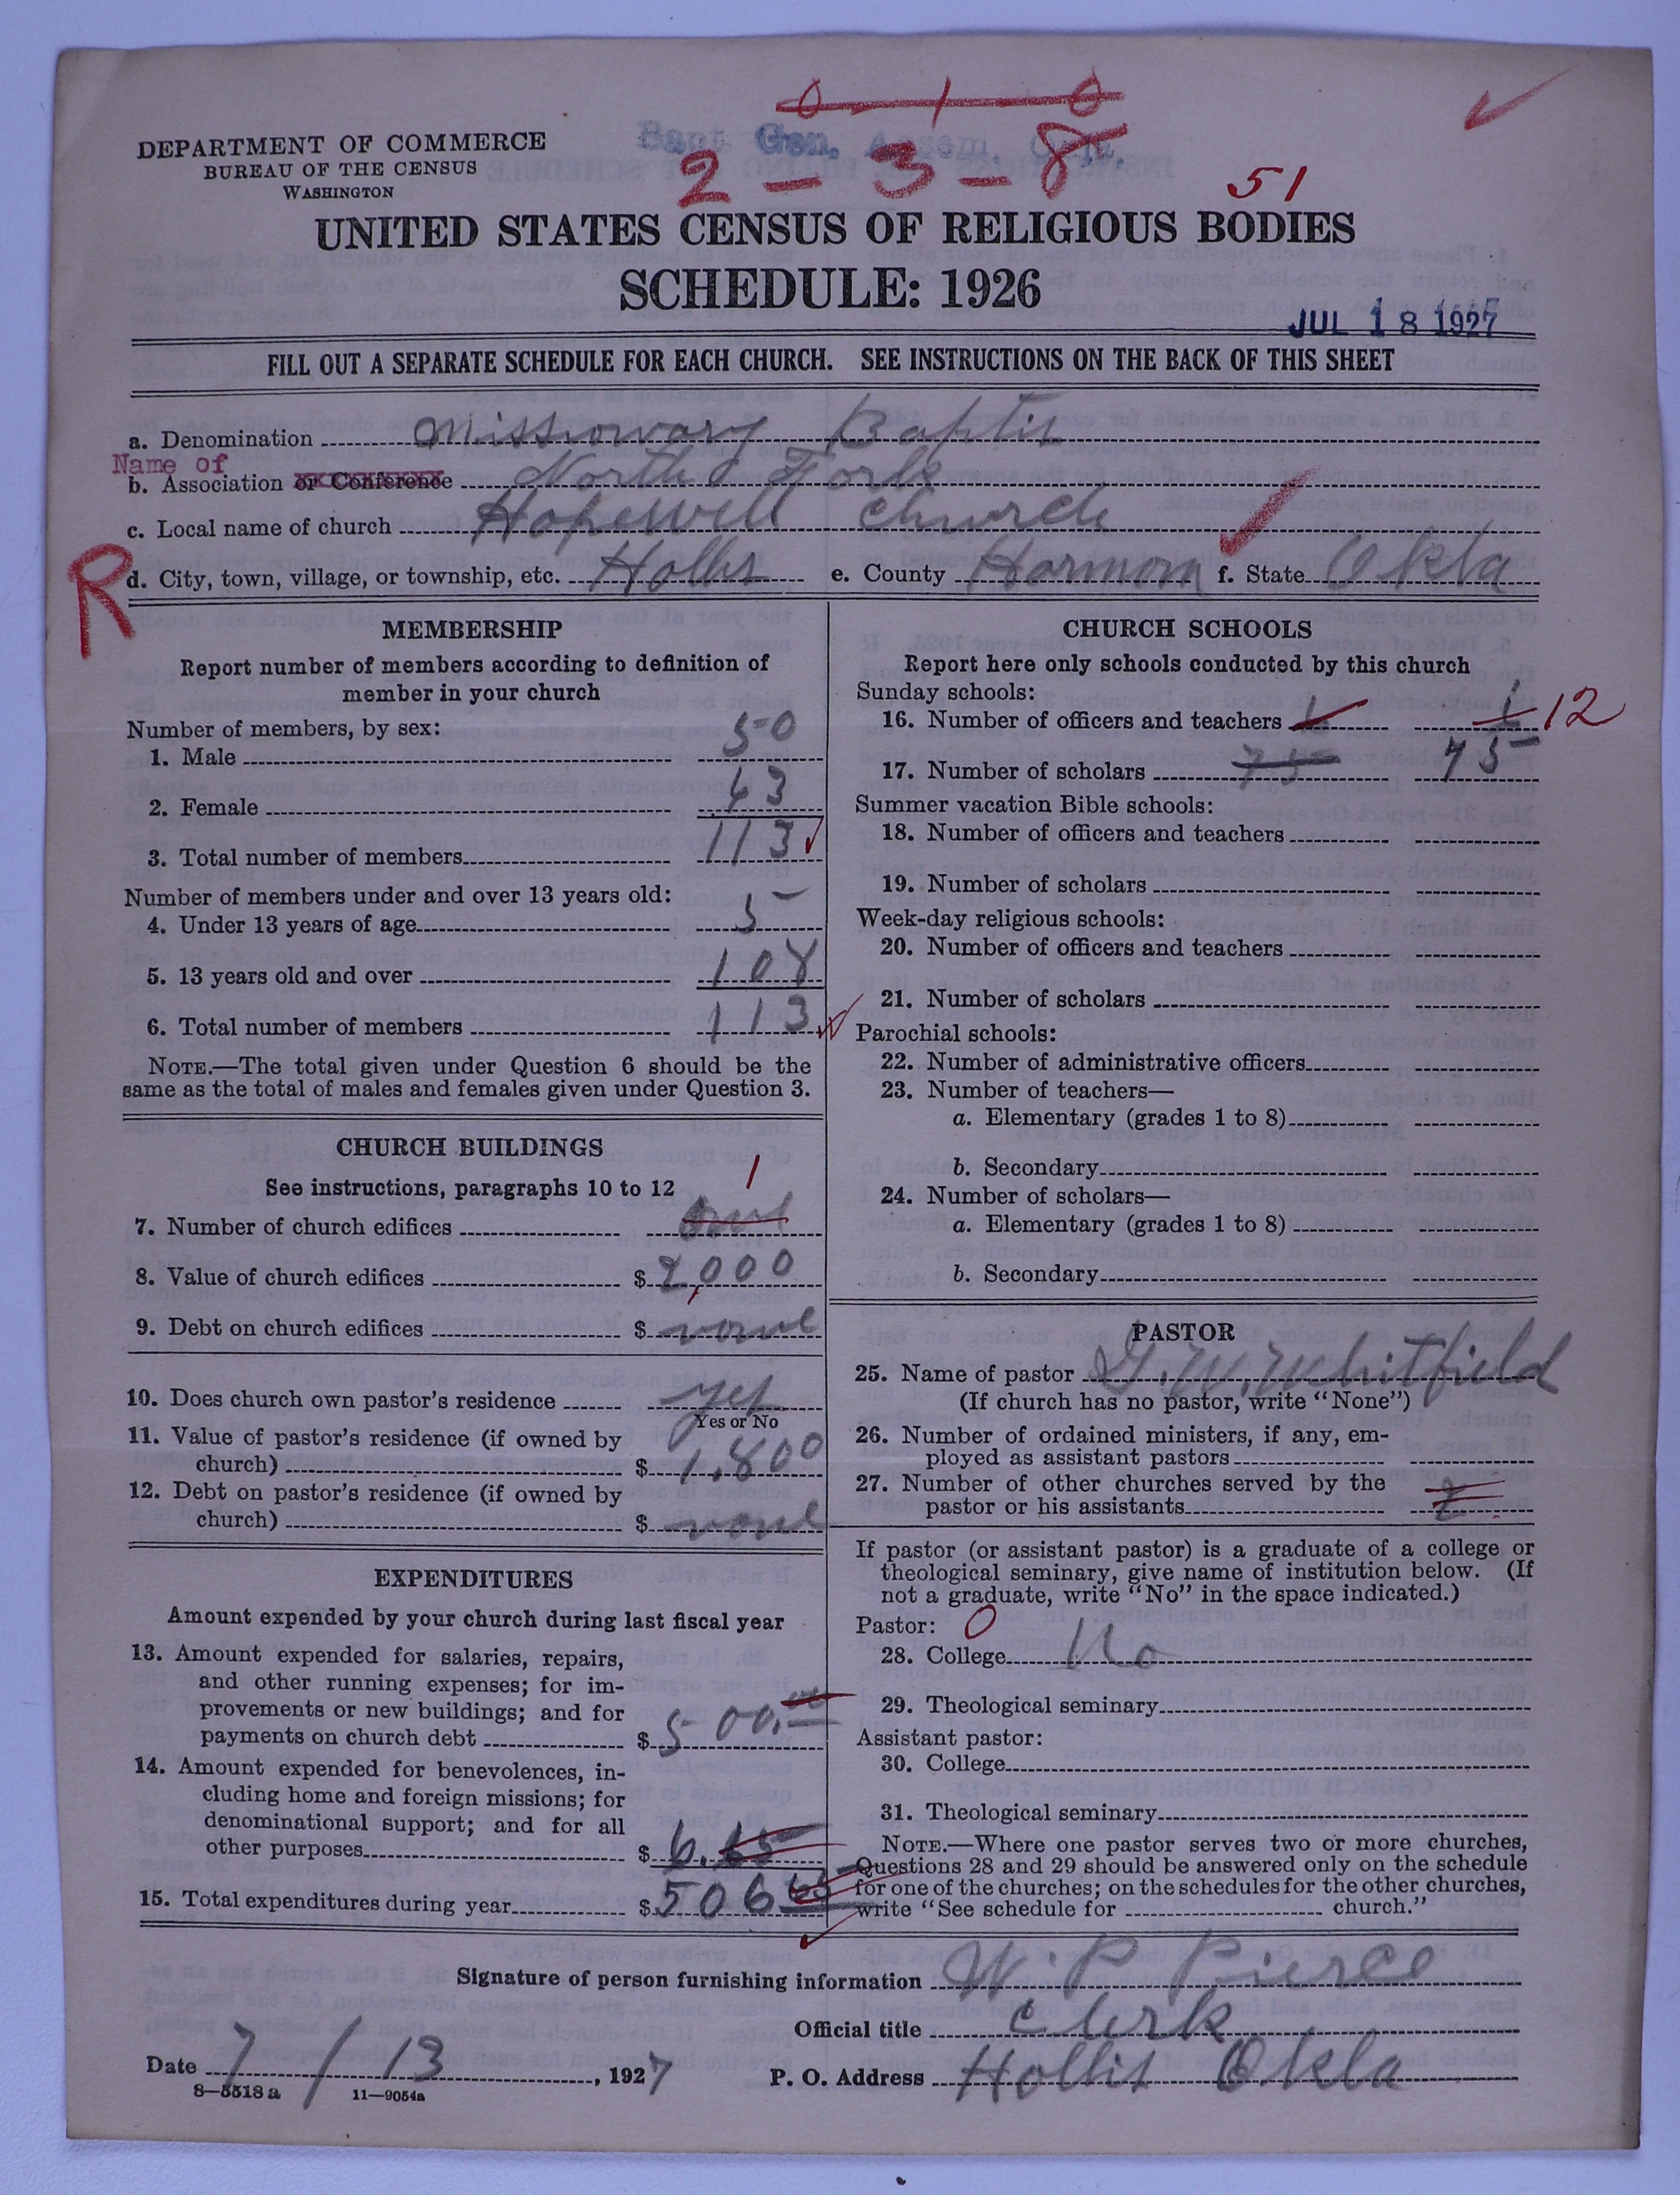 0-1-0
Bapt Gen. Assem. Okla.
DEPARTMENT OF COMMERCE
BUREAU OF THE CENSUS
WASHINGTON
2-3-8
51
UNITED STATES CENSUS OF RELIGIOUS BODIES
SCHEDULE: 1926
JUL 18 1927
FILL OUT A SEPARATE SCHEDULE FOR EACH CHURCH. SEE INSTRUCTIONS ON THE BACK OF THIS SHEET
a. Denomination Missiowary Baptis
Name of
b. Association or Conference North Fork
c. Local name of church Hopewell church
R
d. City, town, village, or township, etc. Hollis e. County Harmon f. State Okla
MEMBERSHIP
Report number of members according to definition of
member in your church
Number of members, by sex:
1. Male 50
2. Female 63
3. Total number of members 113
Number of members under and over 13 years old:
4. Under 13 years of age 5
5. 13 years old and over 108
6. Total number of members 113
NOTE.—The total given under Question 6 should be the
same as the total of males and females given under Question 3.
CHURCH BUILDINGS
See instructions, paragraphs 10 to 12 1
7. Number of church edifices
8. Value of church edifices $ 2,000
9. Debt on church edifices $ none
10. Does church own pastor's residence yes
Yes or No
11. Value of pastor's residence (if owned by
church) $ 1.800
12. Debt on pastor's residence (if owned by
church) $ none
EXPENDITURES
Amount expended by your church during last fiscal year
13. Amount expended for salaries, repairs,
and other running expenses; for im-
provements or new buildings; and for
payments on church debt $ 500.00
14. Amount expended for benevolences, in-
cluding home and foreign missions; for
denominational support; and for all
other purposes $ 6.65
15. Total expenditures during year $ 506 65
CHURCH SCHOOLS
Report here only schools conducted by this church
Sunday schools:
16. Number of officers and teachers 1 1 12
17. Number of scholars 75 75
Summer vacation Bible schools:
18. Number of officers and teachers
19. Number of scholars
Week-day religious schools:
20. Number of officers and teachers
21. Number of scholars
Parochial schools:
22. Number of administrative officers
23. Number of teachers—
a. Elementary (grades 1 to 8)
b. Secondary
24. Number of scholars—
a. Elementary (grades 1 to 8)
b. Secondary
PASTOR
25. Name of pastor G. W. Whitfield
(If church has no pastor, write "None")
26. Number of ordained ministers, if any, em-
ployed as assistant pastors
27. Number of other churches served by the
pastor or his assistants 2
If pastor (or assistant pastor) is a graduate of a college or
theological seminary, give name of institution below. (If
not a graduate, write "No" in the space indicated.)
Pastor: 0
28. College No
29. Theological seminary
Assistant pastor:
30. College
31. Theological seminary
NOTE.—Where one pastor serves two or more churches,
Questions 28 and 29 should be answered only on the schedule
for one of the churches; on the schedules for the other churches,
write "See schedule for church."
Signature of person furnishing information W. P. Pierce
Official title Clerk
Date 7/13, 1927 P. O. Address Hollis Okla
8—5518 a 11—9054a